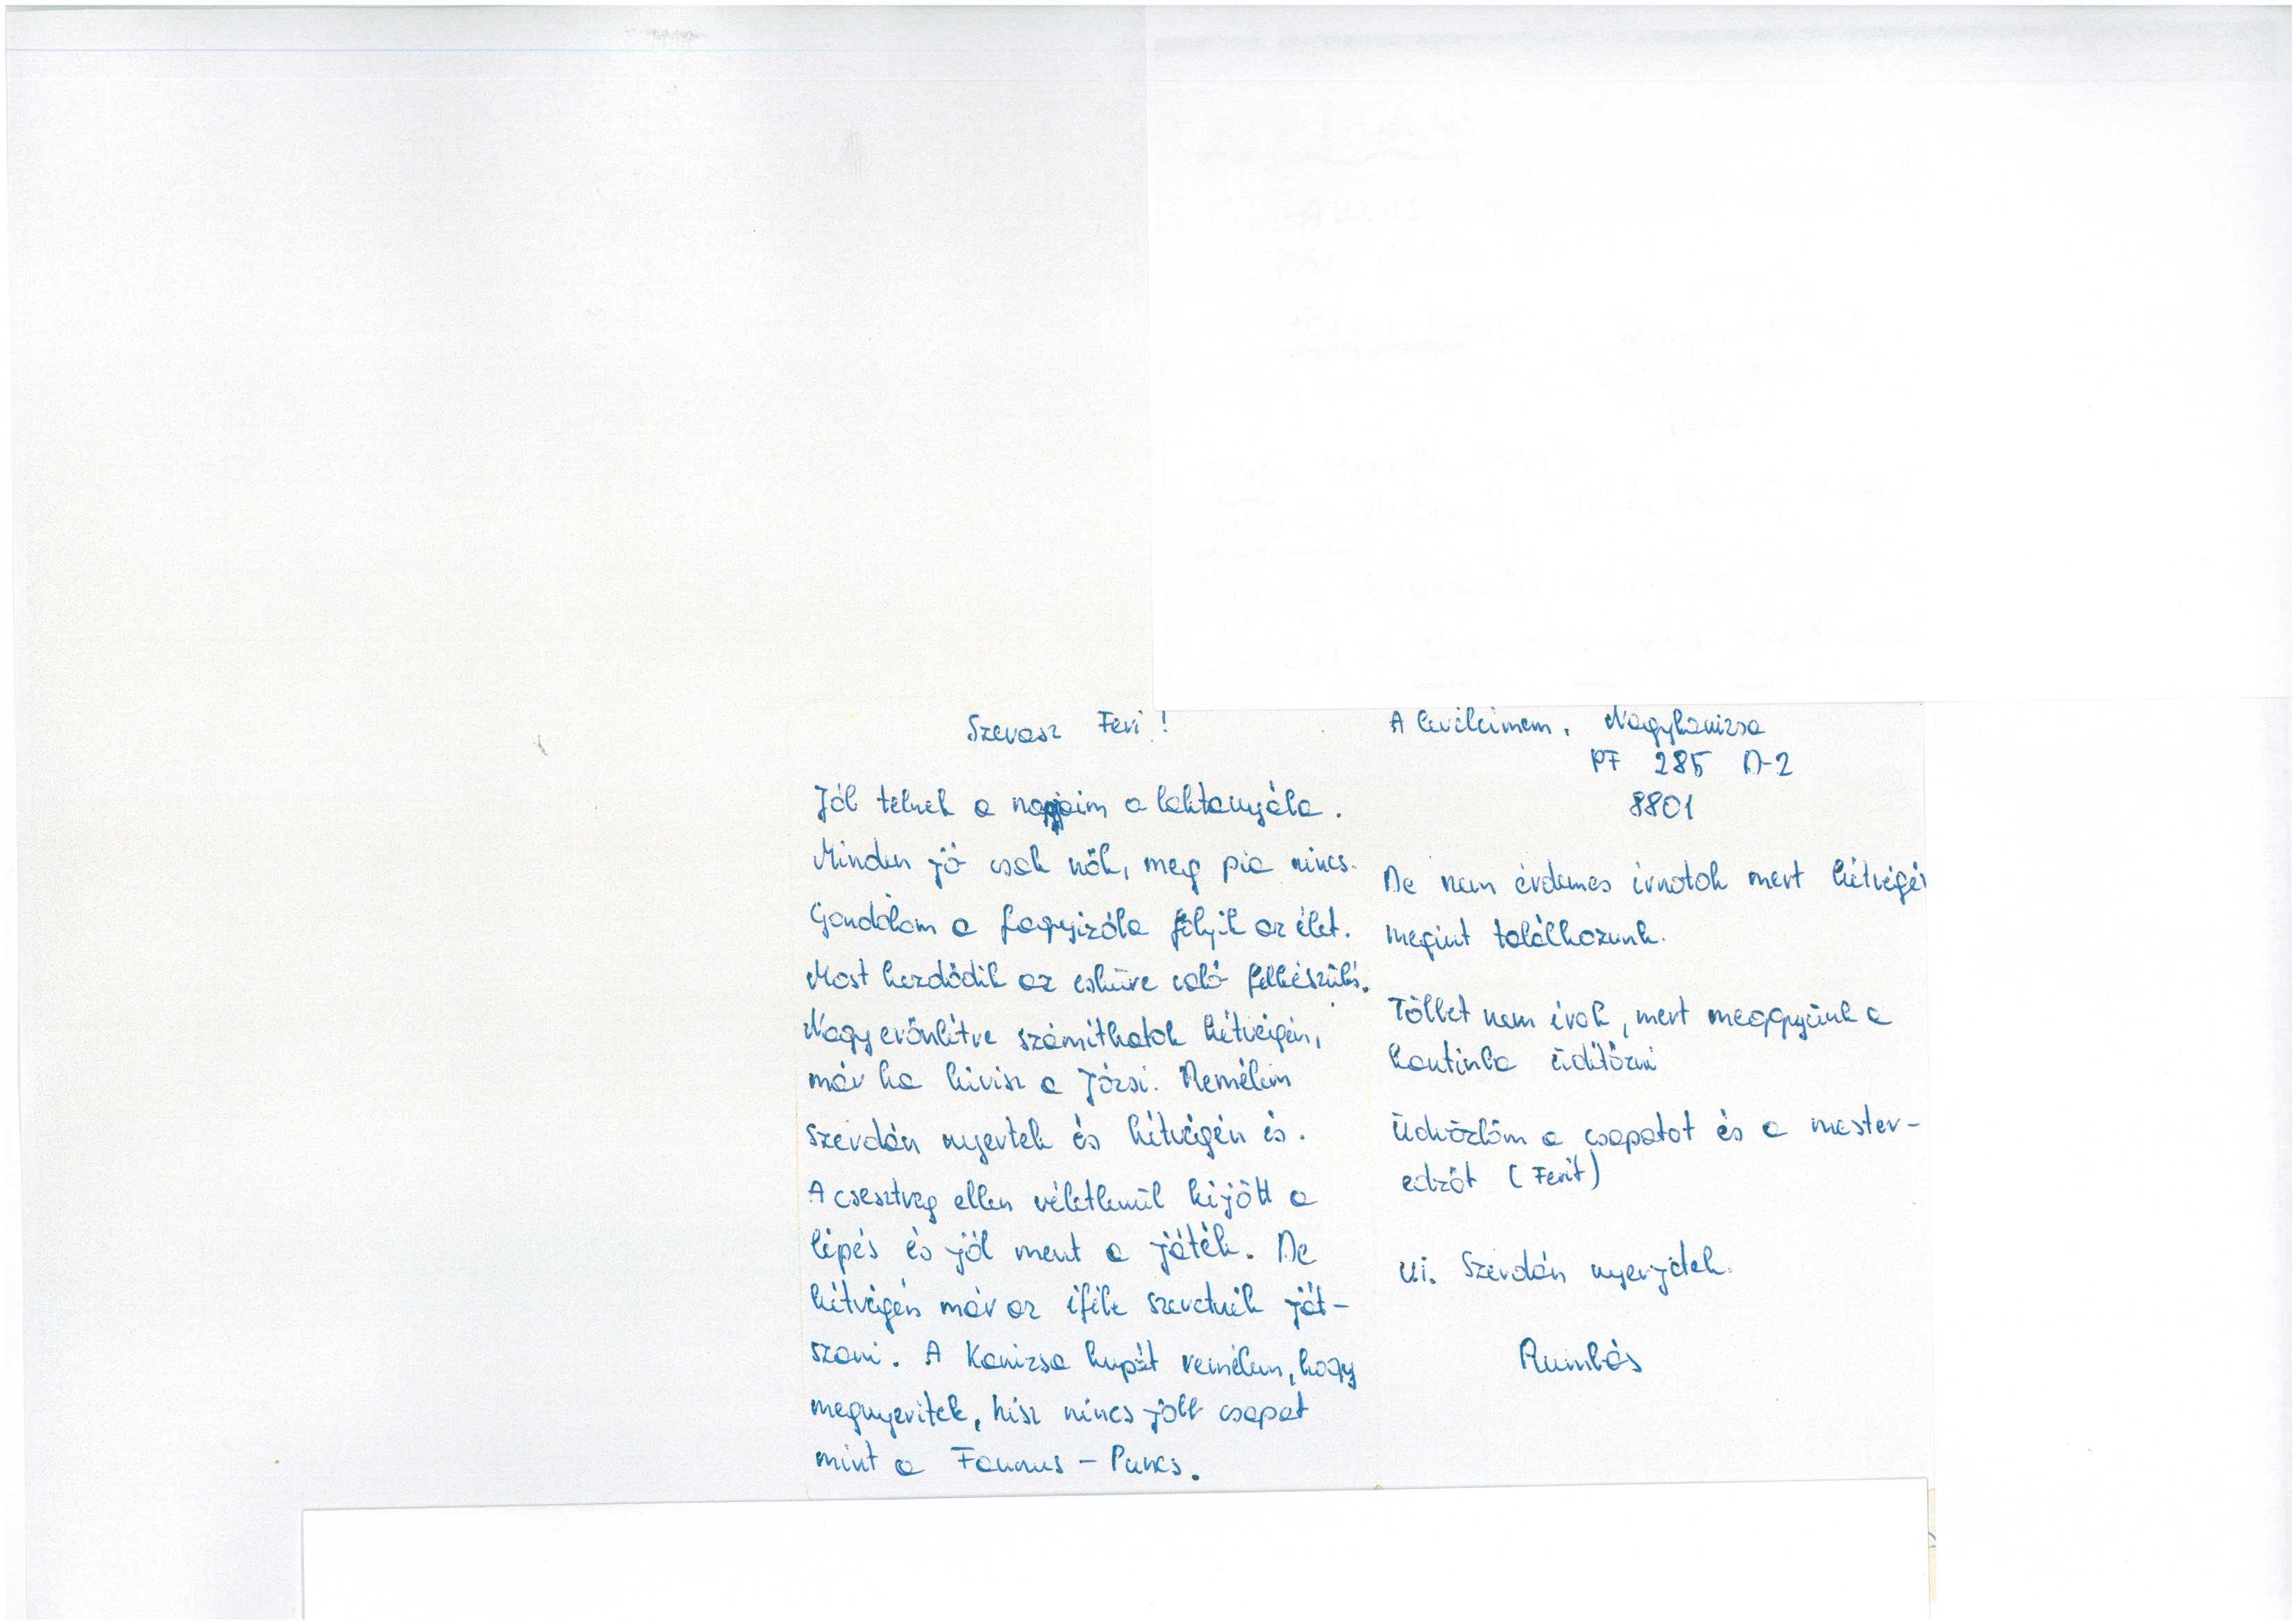 Szevasz Feri!
Jól telnek a napjaim a laktanyába.
Minden jó csak nők, meg pia nincs.
Gondolom a fagyizóba folyik az élet.
Most kezdődik az esküre való felkészülés.
Nagy erőnlétre számíthatok hétvégén,
már ha kivisz a Józsi. Remélem
szerdán nyertek és hétvégén is.
A csesztreg ellen véletlenül kijött a
lépés és jól ment a játék. De
hétvégén már az ifik szeretnék ját-
szani. A Kanizsa kupát remélem, hogy
megnyeritek, hisz nincs jobb csapat
mint a Faunus - Pancs.
A levélcímem. Nagykanizsa
PF 285 A-2
8801
De nem érdemes írnotok mert hétvégé
megint találkozunk.
Többet nem írok, mert meggyünk a
kantinba üdítőzni
Üdvözlöm a csapatot és a mester-
edzőt (Ferit)
Ui. Szerdán nyerjetek.